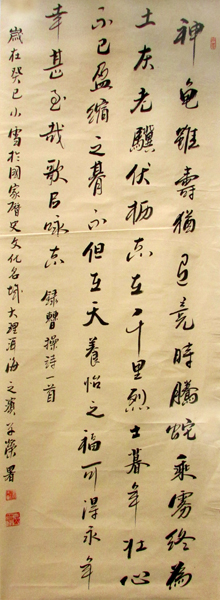 神龜雖壽猶有竟時騰蛇乘霧終為
土灰老驥伏枥志在千里烈士暮年壮心
不已盈縮之期不但在天養怡之福可得永年
幸甚至哉歌以咏志 録曹操詩一首
歲在癸巳小雪於國家歷史文化名城大理洱海之濱榮署